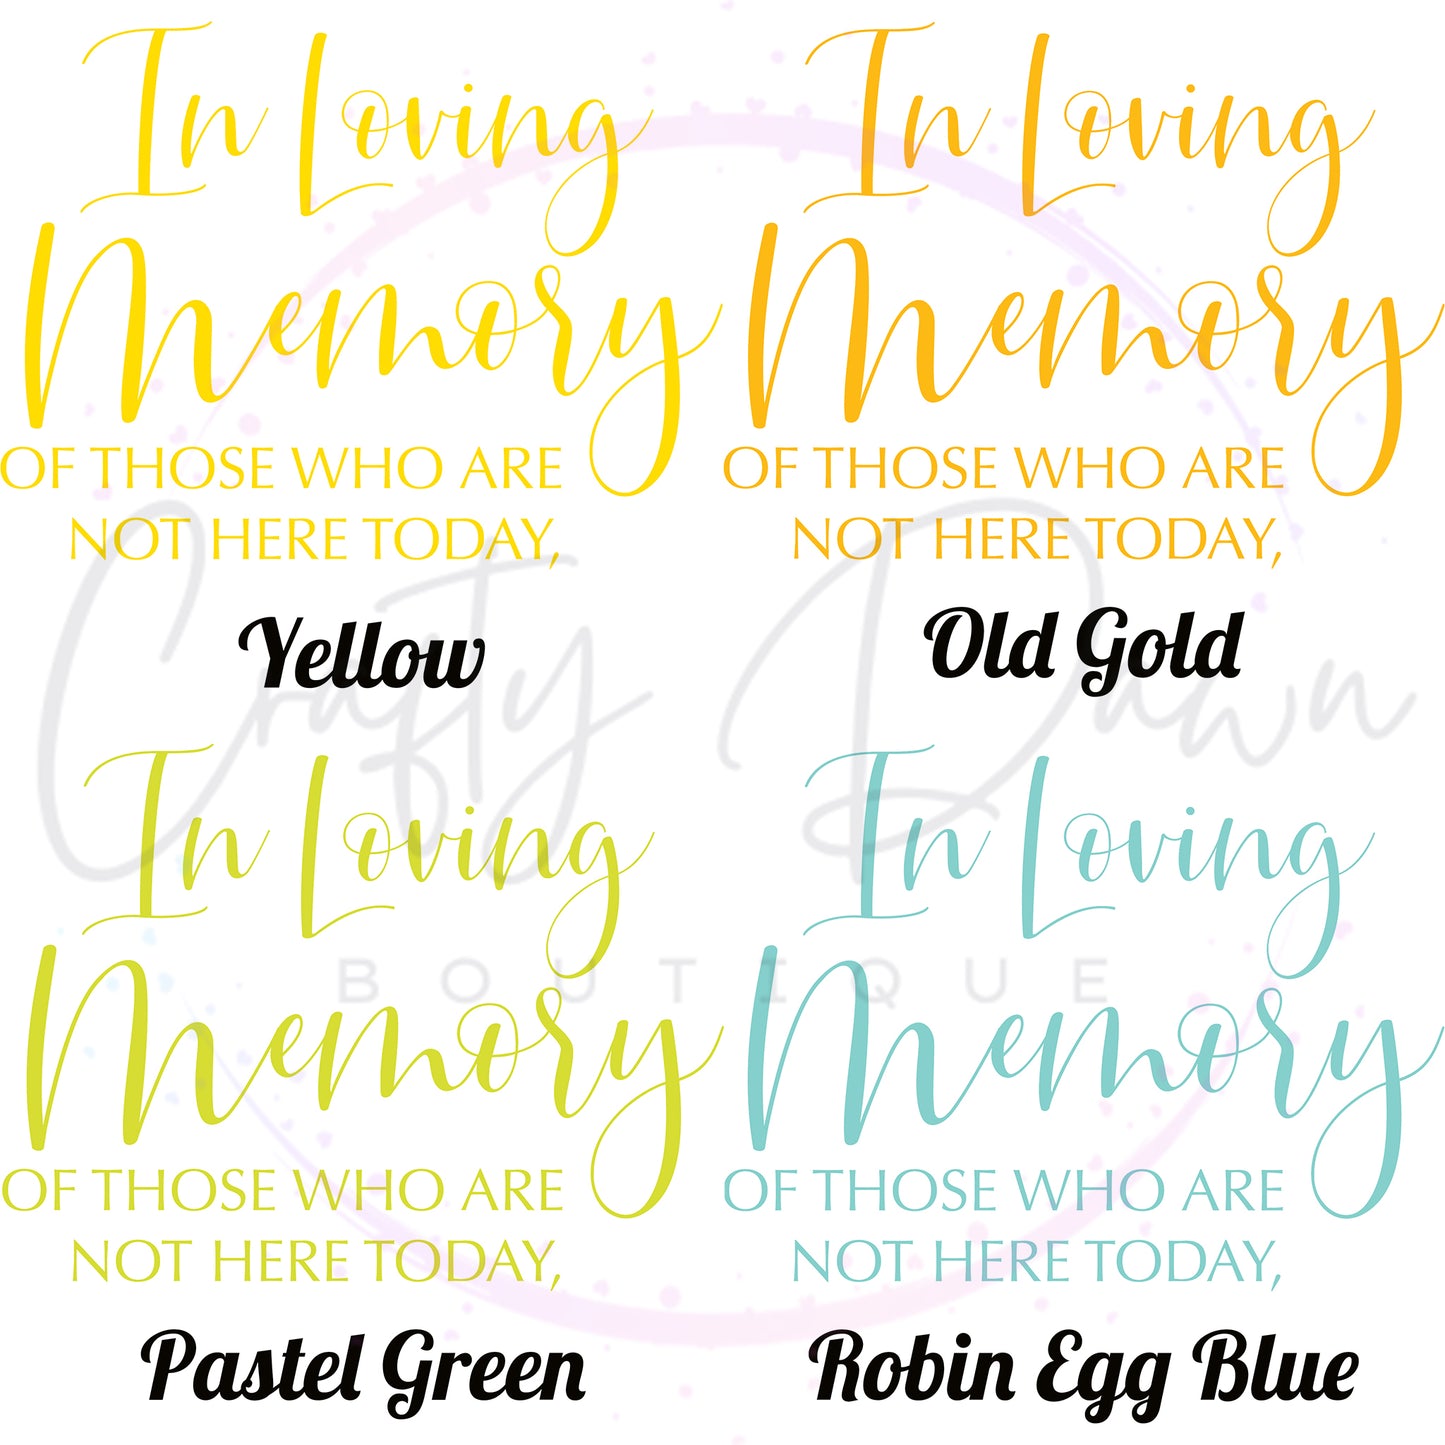 In Loving
Memory
OF THOSE WHO ARE
NOT HERE TODAY,
Yellow
In Loving
Memory
OF THOSE WHO ARE
NOT HERE TODAY,
Old Gold
In Loving
Memory
OF THOSE WHO ARE
NOT HERE TODAY,
Pastel Green
In Loving
Memory
OF THOSE WHO ARE
NOT HERE TODAY,
Robin Egg Blue
Crafty Dawn
BOUTIQUE